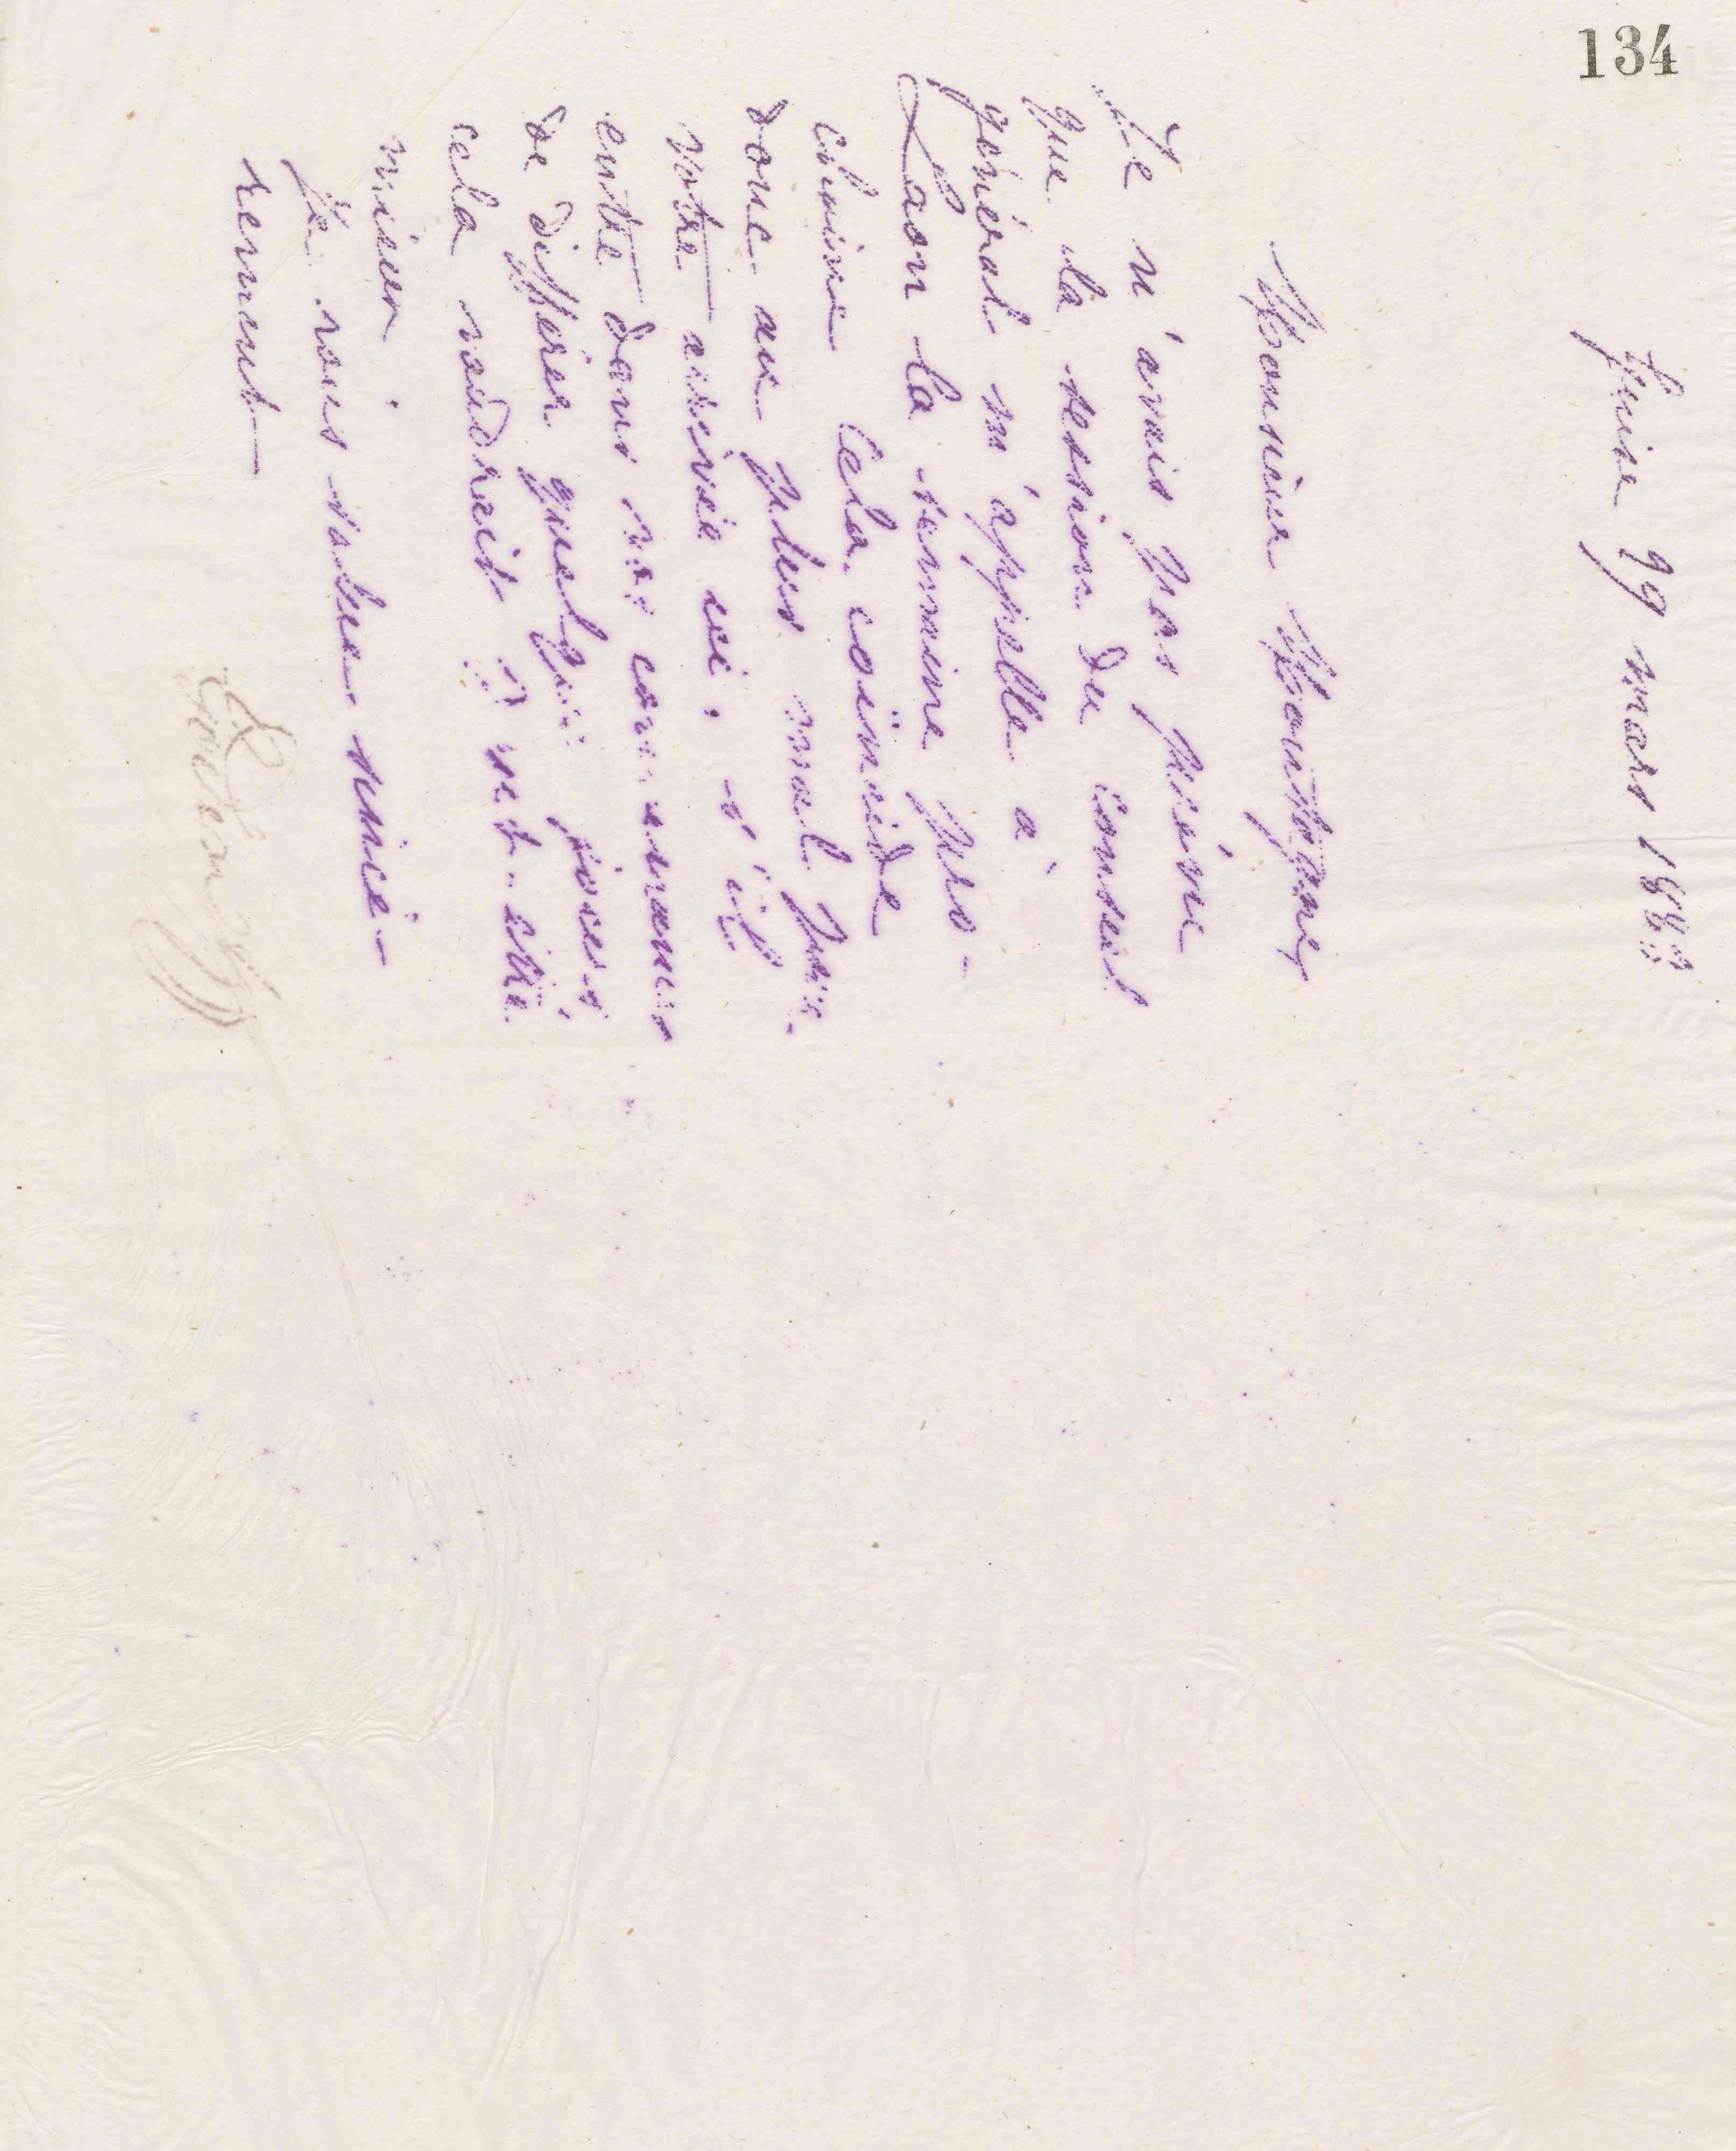 134
Guise 29 mars 1883
Monsieur Montagne
Je n'avais pas prévu
que la session du Conseil
général m'appelle à
Laon la semaine pro-
chaine. Cela coïncide
donc au plus mal pour
votre arrivée ici. S'il
entre dans vos convenances
de différer quelques jours
cela vaudrait peut-être
mieux.
Je vous salue sincè-
rement
Godin